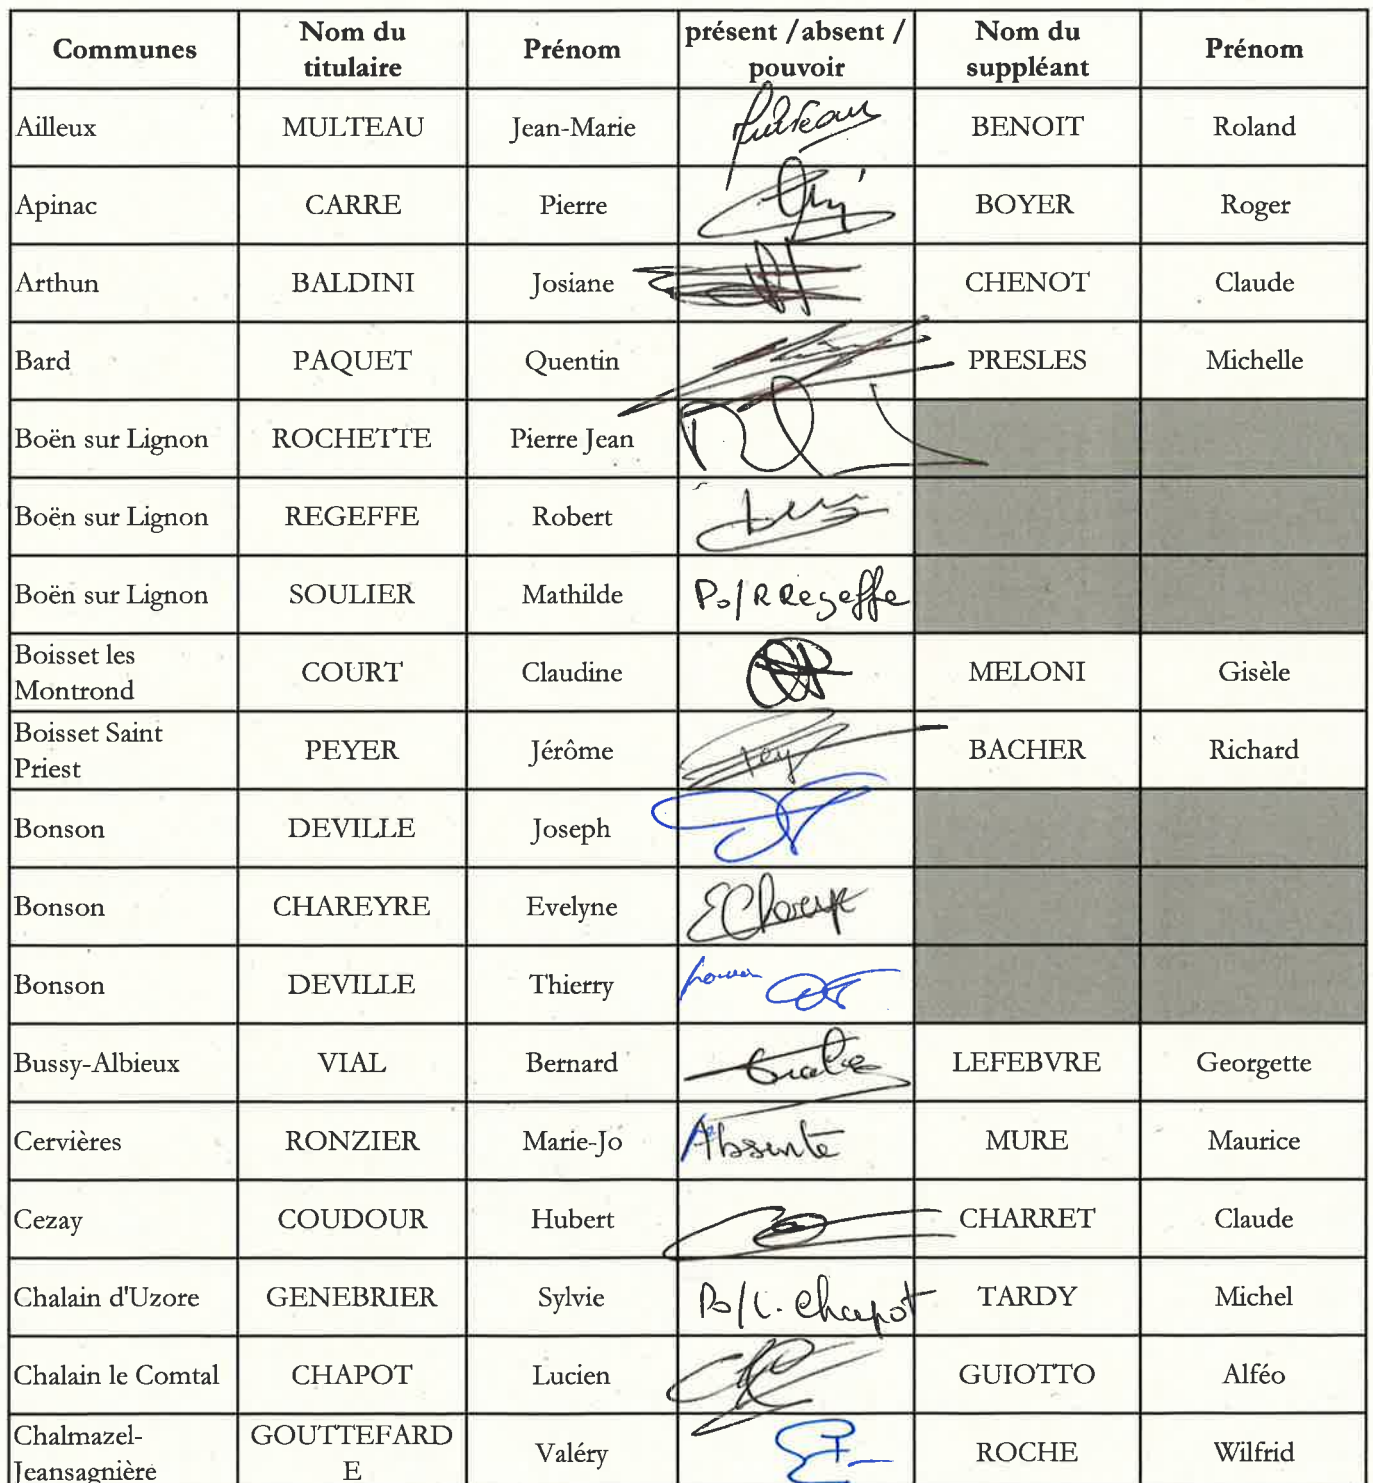 Communes Nom du titulaire Prénom présent / absent / pouvoir Nom du suppléant Prénom
Ailleux MULTEAU Jean-Marie Multeau BENOIT Roland
Apinac CARRE Pierre BOYER Roger
Arthun BALDINI Josiane CHENOT Claude
Bard PAQUET Quentin PRESLES Michelle
Boën sur Lignon ROCHETTE Pierre Jean
Boën sur Lignon REGEFFE Robert
Boën sur Lignon SOULIER Mathilde Po/R Regeffe
Boisset les Montrond COURT Claudine MELONI Gisèle
Boisset Saint Priest PEYER Jérôme BACHER Richard
Bonson DEVILLE Joseph
Bonson CHAREYRE Evelyne
Bonson DEVILLE Thierry pouvoir
Bussy-Albieux VIAL Bernard LEFEBVRE Georgette
Cervières RONZIER Marie-Jo Absente MURE Maurice
Cezay COUDOUR Hubert CHARRET Claude
Chalain d'Uzore GENEBRIER Sylvie Po/L. Chapot TARDY Michel
Chalain le Comtal CHAPOT Lucien GUIOTTO Alféo
Chalmazel-Jeansagnière GOUTTEFARDE Valéry ROCHE Wilfrid